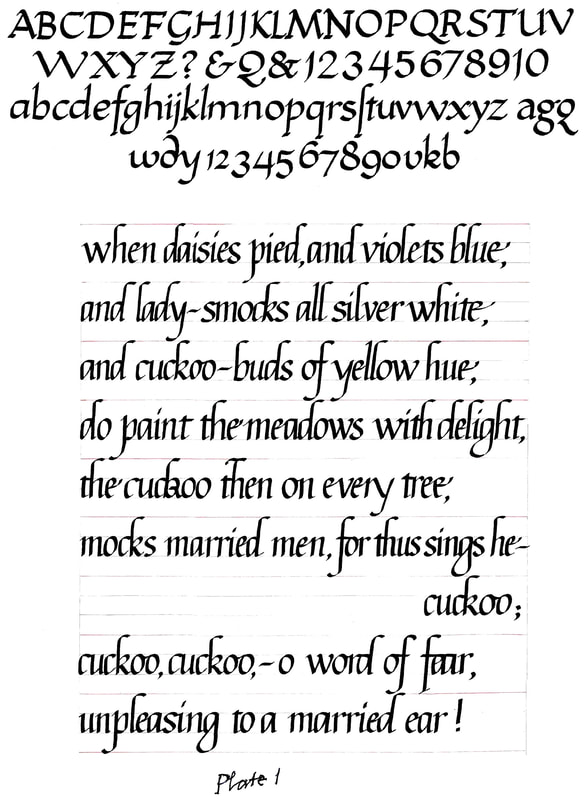 ABCDEFGHIJJKLMNOPQRSTUV
WXYZ? &Q& 12345678910
abcdefghijklmnopqrsſtuvwxyz agg
wdy 1234567890vkb
when daisies pied, and violets blue;
and lady-smocks all silver white;
and cuckoo-buds of yellow hue;
do paint the meadows with delight,
the cuckoo then on every tree;
mocks married men, for thus sings he-
cuckoo;
cuckoo, cuckoo,- o word of fear,
unpleasing to a married ear!
Plate 1